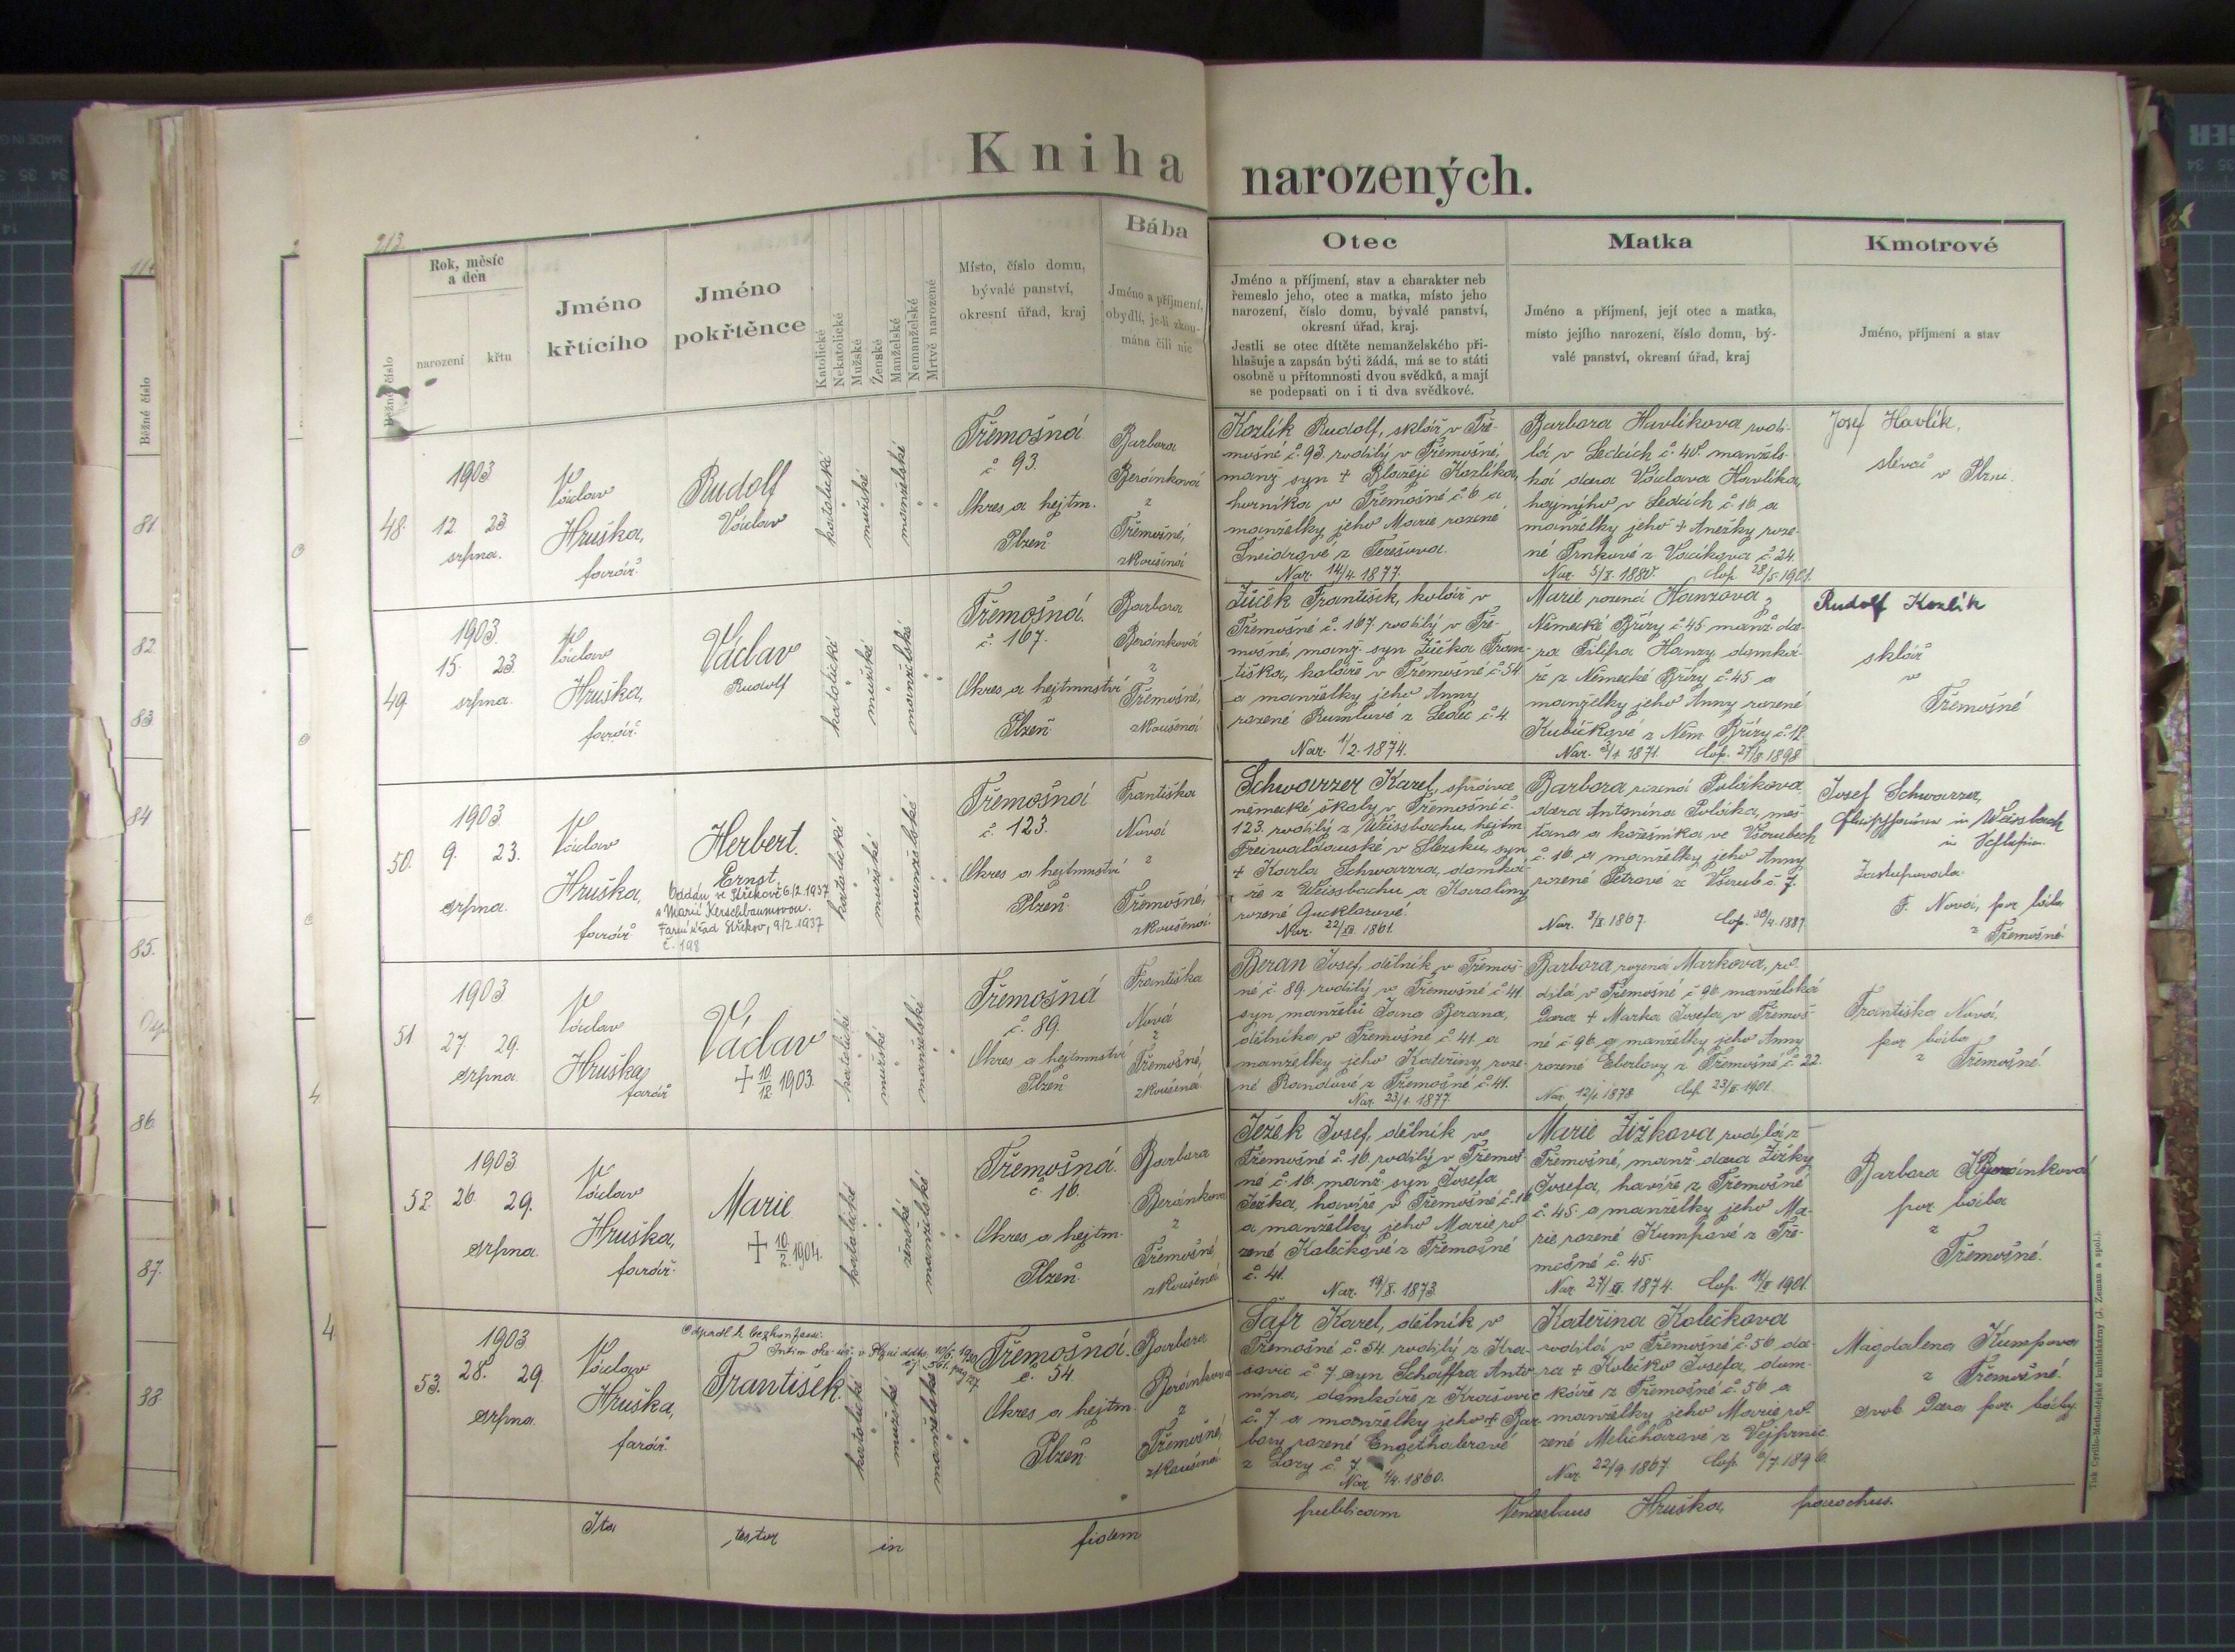 Kniha narozených.
213.
Běžné číslo
Rok, měsíc
a den
narození
křtu
Jméno
křtícího
Jméno
pokřtěnce
Katolické
Nekatolické
Mužské
Ženské
Manželské
Nemanželské
Mrtvě narozené
Místo, číslo domu,
bývalé panství,
okresní úřad, kraj
Bába
Jméno a příjmení,
obydlí, je-li zkou-
mána čili nic
Otec
Jméno a příjmení, stav a charakter neb
řemeslo jeho, otec a matka, místo jeho
narození, číslo domu, bývalé panství,
okresní úřad, kraj.
Jestli se otec dítěte nemanželského při-
hlašuje a zapsán býti žádá, má se to státi
osobně u přítomnosti dvou svědků, a mají
se podepsati on i ti dva svědkové.
Matka
Jméno a příjmení, její otec a matka,
místo jejího narození, číslo domu, bý-
valé panství, okresní úřad, kraj
Kmotrové
Jméno, příjmení a stav
48.
1903
12. 23.
srpna.
Václav
Hruška,
farář.
Rudolf
Václav
katolické
mužské
manželské
Třemošná
č. 93.
Okres a hejtm.
Plzeň
Barbora
Beránková
z
Třemošné,
zkoušená
Kozlík Rudolf, sklář v Tře-
mošné č. 93. rodilý v Třemošné,
manž. syn + Blažeje Kozlíka,
horníka v Třemošné č. 6 a
manželky jeho Marie rozené
Šneidrové z Terešova.
Nar. 14/4. 1877.
Barbora Havlíkova rodi-
lá v Ledcích č. 40. manžels-
ká dcera Václava Havlíka,
hajného v Ledcích č. 16. a
manželky jeho + Anežky roze-
né Trnkové z č. 24.
Nar. 5/X. 1880. Cop. 28/5. 1901.
Josef Havlík,
slévač
v Plzni.
49.
1903.
15. 23
srpna.
Václav
Hruška,
farář.
Václav
Rudolf
katolické
mužské
manželské
Třemošná.
č. 167.
Okres a hejtmnství
Plzeň
Barbora
Beránková
z
Třemošné,
zkoušená
Žůček František, kolář v
Třemošné č. 167. rodilý v Tře-
mošné, manž. syn Žůčka Fran-
tiška, koláře v Třemošné č. 54
a manželky jeho Anny
rozené z Ledec č. 4.
Nar. 1/2. 1874.
Marie rozená Hanzova z
Německé Břízy č. 45 manž. dce-
ra Filipa Hanzy domká-
ře z Německé Břízy č. 45 a
manželky jeho Anny rozené
Kubíčkové z Něm. Břízy č. 12.
Nar. 1871. Cop. 1898
Rudolf Kozlík
sklář
v
Třemošné
50.
1903.
9. 23.
srpna.
Václav
Hruška,
farář
Herbert.
Ernst.
Oddán ve Střekově 6/2 1937
s Marií Kerschbaumovou.
Farní úřad Střekov, 9/2. 1937
č. 198
katolické
mužské
manželské
Třemošná
č. 123.
Okres a hejtmnství
Plzeň
Františka
Nová
z
Třemošné,
zkoušená.
Schwarzer Karel, správce
německé školy v Třemošné č.
123. rodilý z Weissbachu, hejtm
Freiwaldavské v Slezsku, syn
+ Karla Schwarzra, domká-
ře z Weissbachu a Karoliny
rozené Gucklarové.
Nar. 22/XII 1861.
Barbora rozená Polákova,
dcera Antonína Poláka, měš-
ťana a kožešníka ve Všerubech
č. 16. a manželky jeho Anny
rozené Petrové z Všerub č. 7.
Nar. 1867. Cop. 1887
Josef Schwarzer,
in Weissbach
in Schlesien.
Zastupovala
F. Nová, por. bába
z Třemošné.
51
1903
27. 29.
srpna
Václav
Hruška,
farář
Václav
+ 10/12. 1903.
katolické
mužské
manželské
Třemošná
č. 89.
Okres a hejtmnství
Plzeň
Františka
Nová
z
Třemošné,
zkoušená
Beran Josef, dělník v Třemoš-
né č. 89. rodilý v Třemošné č. 41.
syn manželů Jana Berana,
dělníka v Třemošné č. 41 a
manželky jeho Kateřiny roze-
né Randové z Třemošné č. 41.
Nar. 23/1. 1877.
Barbora rozená Markova, ro-
dilá v Třemošné č. 96. manželská
dcera + Marka Josefa, v Třemoš-
né č. 96 a manželky jeho Anny
rozené Eberlovy z Třemošné č. 22.
Nar. 12/1. 1878 Cop. 23/II. 1901.
Františka Nová,
por. bába
z Třemošné.
52.
1903.
26. 29.
srpna.
Václav
Hruška,
farář.
Marie
+ 10/2. 1904.
katolické
ženské
manželské
Třemošná.
č. 16.
Okres a hejtm.
Plzeň.
Barbora
Beránková
z
Třemošné,
zkoušená
Ježek Josef, dělník ve
Třemošné č. 16. rodilý v Třemoš-
né č. 16. manž. syn Josefa
Ježka, havíře v Třemošné č. 16
a manželky jeho Marie ro-
zené Kolečkové z Třemošné
č. 41.
Nar. 19/X. 1873.
Marie Žižkova rodilá z
Třemošné, manž. dcera Žižky
Josefa, havíře z Třemošné
č. 45. a manželky jeho Ma-
rie rozené Kumpové z Tře-
mošné č. 45.
Nar. 1874. Cop. 1901.
Barbora Beránková
por. bába
z
Třemošné.
53.
1903
28. 29.
srpna.
Václav
Hruška,
farář.
Odpadl k bezkonfessi.
Intim. okr. úř. v Plzni
František.
katolické
mužské
manželské
Třemošná.
č. 54.
Okres a hejtm.
Plzeň
Barbora
Beránková
z
Třemošné,
zkoušená
Šafr Karel, dělník v
Třemošné č. 54. rodilý z Kra-
šovic č. 7 syn Schaffra Anto-
nína, domkáře z Krašovic
č. 7 a manželky jeho + Bar-
bory rozené Engethalerové
z Lozy č. 7.
Nar. 1/4. 1860.
Kateřina Kolečkova
rodilá v Třemošné č. 56. dce-
ra + Kolečko Josefa, dom-
káře z Třemošné č. 56 a
manželky jeho Marie ro-
zené Melicharové z Vejprnic.
Nar. 22/9 1867. Cop. 1896.
Magdalena Kumpova
z Třemošné.
svob. dcera por. báby.
Ita testor in fidem publicam Venceslaus Hruška, parochus.
Tisk Cyrillo-Methodějské knihtiskárny (J. Zeman a spol.).
Běžné číslo
81
82.
83
84
85.
86.
87.
88.